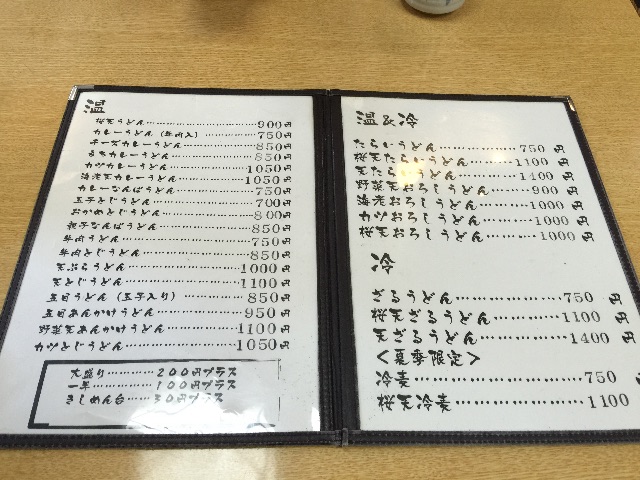 温
桜天うどん 900円
カレーうどん (牛肉入) 750円
チーズカレーうどん 850円
もちカレーうどん 850円
カツカレーうどん 1050円
海老天カレーうどん 1050円
カレーなんばうどん 750円
玉子とじうどん 700円
おかめとじうどん 800円
親子なんばうどん 850円
牛肉うどん 750円
牛肉とじうどん 850円
天ぷらうどん 1000円
天とじうどん 1100円
五目うどん (玉子入り) 850円
五目あんかけうどん 950円
野菜天あんかけうどん 1100円
カツとじうどん 1050円
大盛り 200円プラス
一半 100円プラス
きしめん台 50円プラス
温&冷
たらいうどん 750円
桜天たらいうどん 1100円
天たらいうどん 1400円
野菜天おろしうどん 900円
海老おろしうどん 1000円
カツおろしうどん 1000円
桜天おろしうどん 1000円
冷
ざるうどん 750円
桜天ざるうどん 1100円
天ざるうどん 1400円
<夏季限定>
冷麦 750円
桜天冷麦 1100